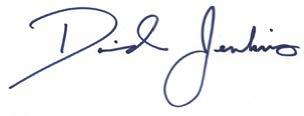 David Jenkins